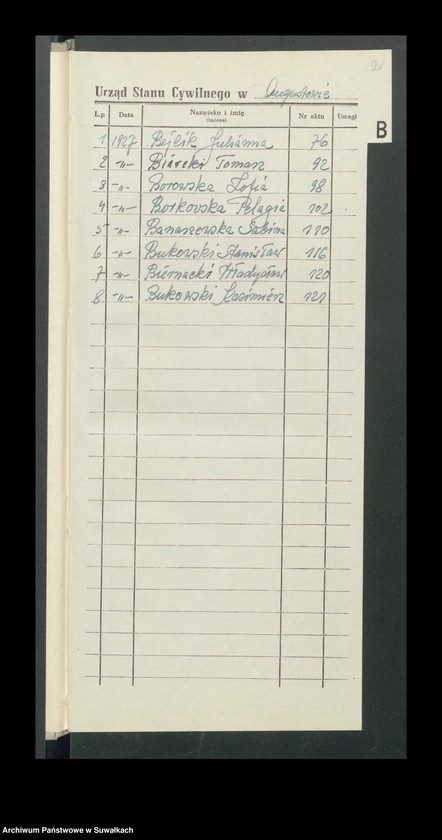 21
Urząd Stanu Cywilnego w Augustowie
L.p. Data Nazwisko i imię Nr aktu Uwagi
(łacina)
B
1 1927 Bejlik Julianna 76
2 -"- Biarcki Tomasz 92
3 -"- Borowska Zofia 98
4 -"- Borkowska Pelagia 102
5 -"- Banaszewska Sabina 110
6 -"- Bukowski Stanisław 116
7 -"- Biernacki Władysław 120
8 -"- Bukowski Kazimierz 121
Archiwum Państwowe w Suwałkach